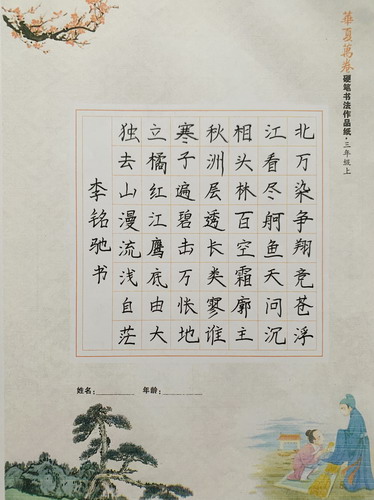 華夏萬卷 硬笔书法作品纸·三年级上
独立寒秋相江北
去橘子洲头看万
山红遍层林尽染
漫江碧透百舸争
流鹰击长空鱼翔
浅底万类霜天竞
自由怅寥廓问苍
茫大地谁主沉浮
李铭驰书
姓名：________ 年龄：________